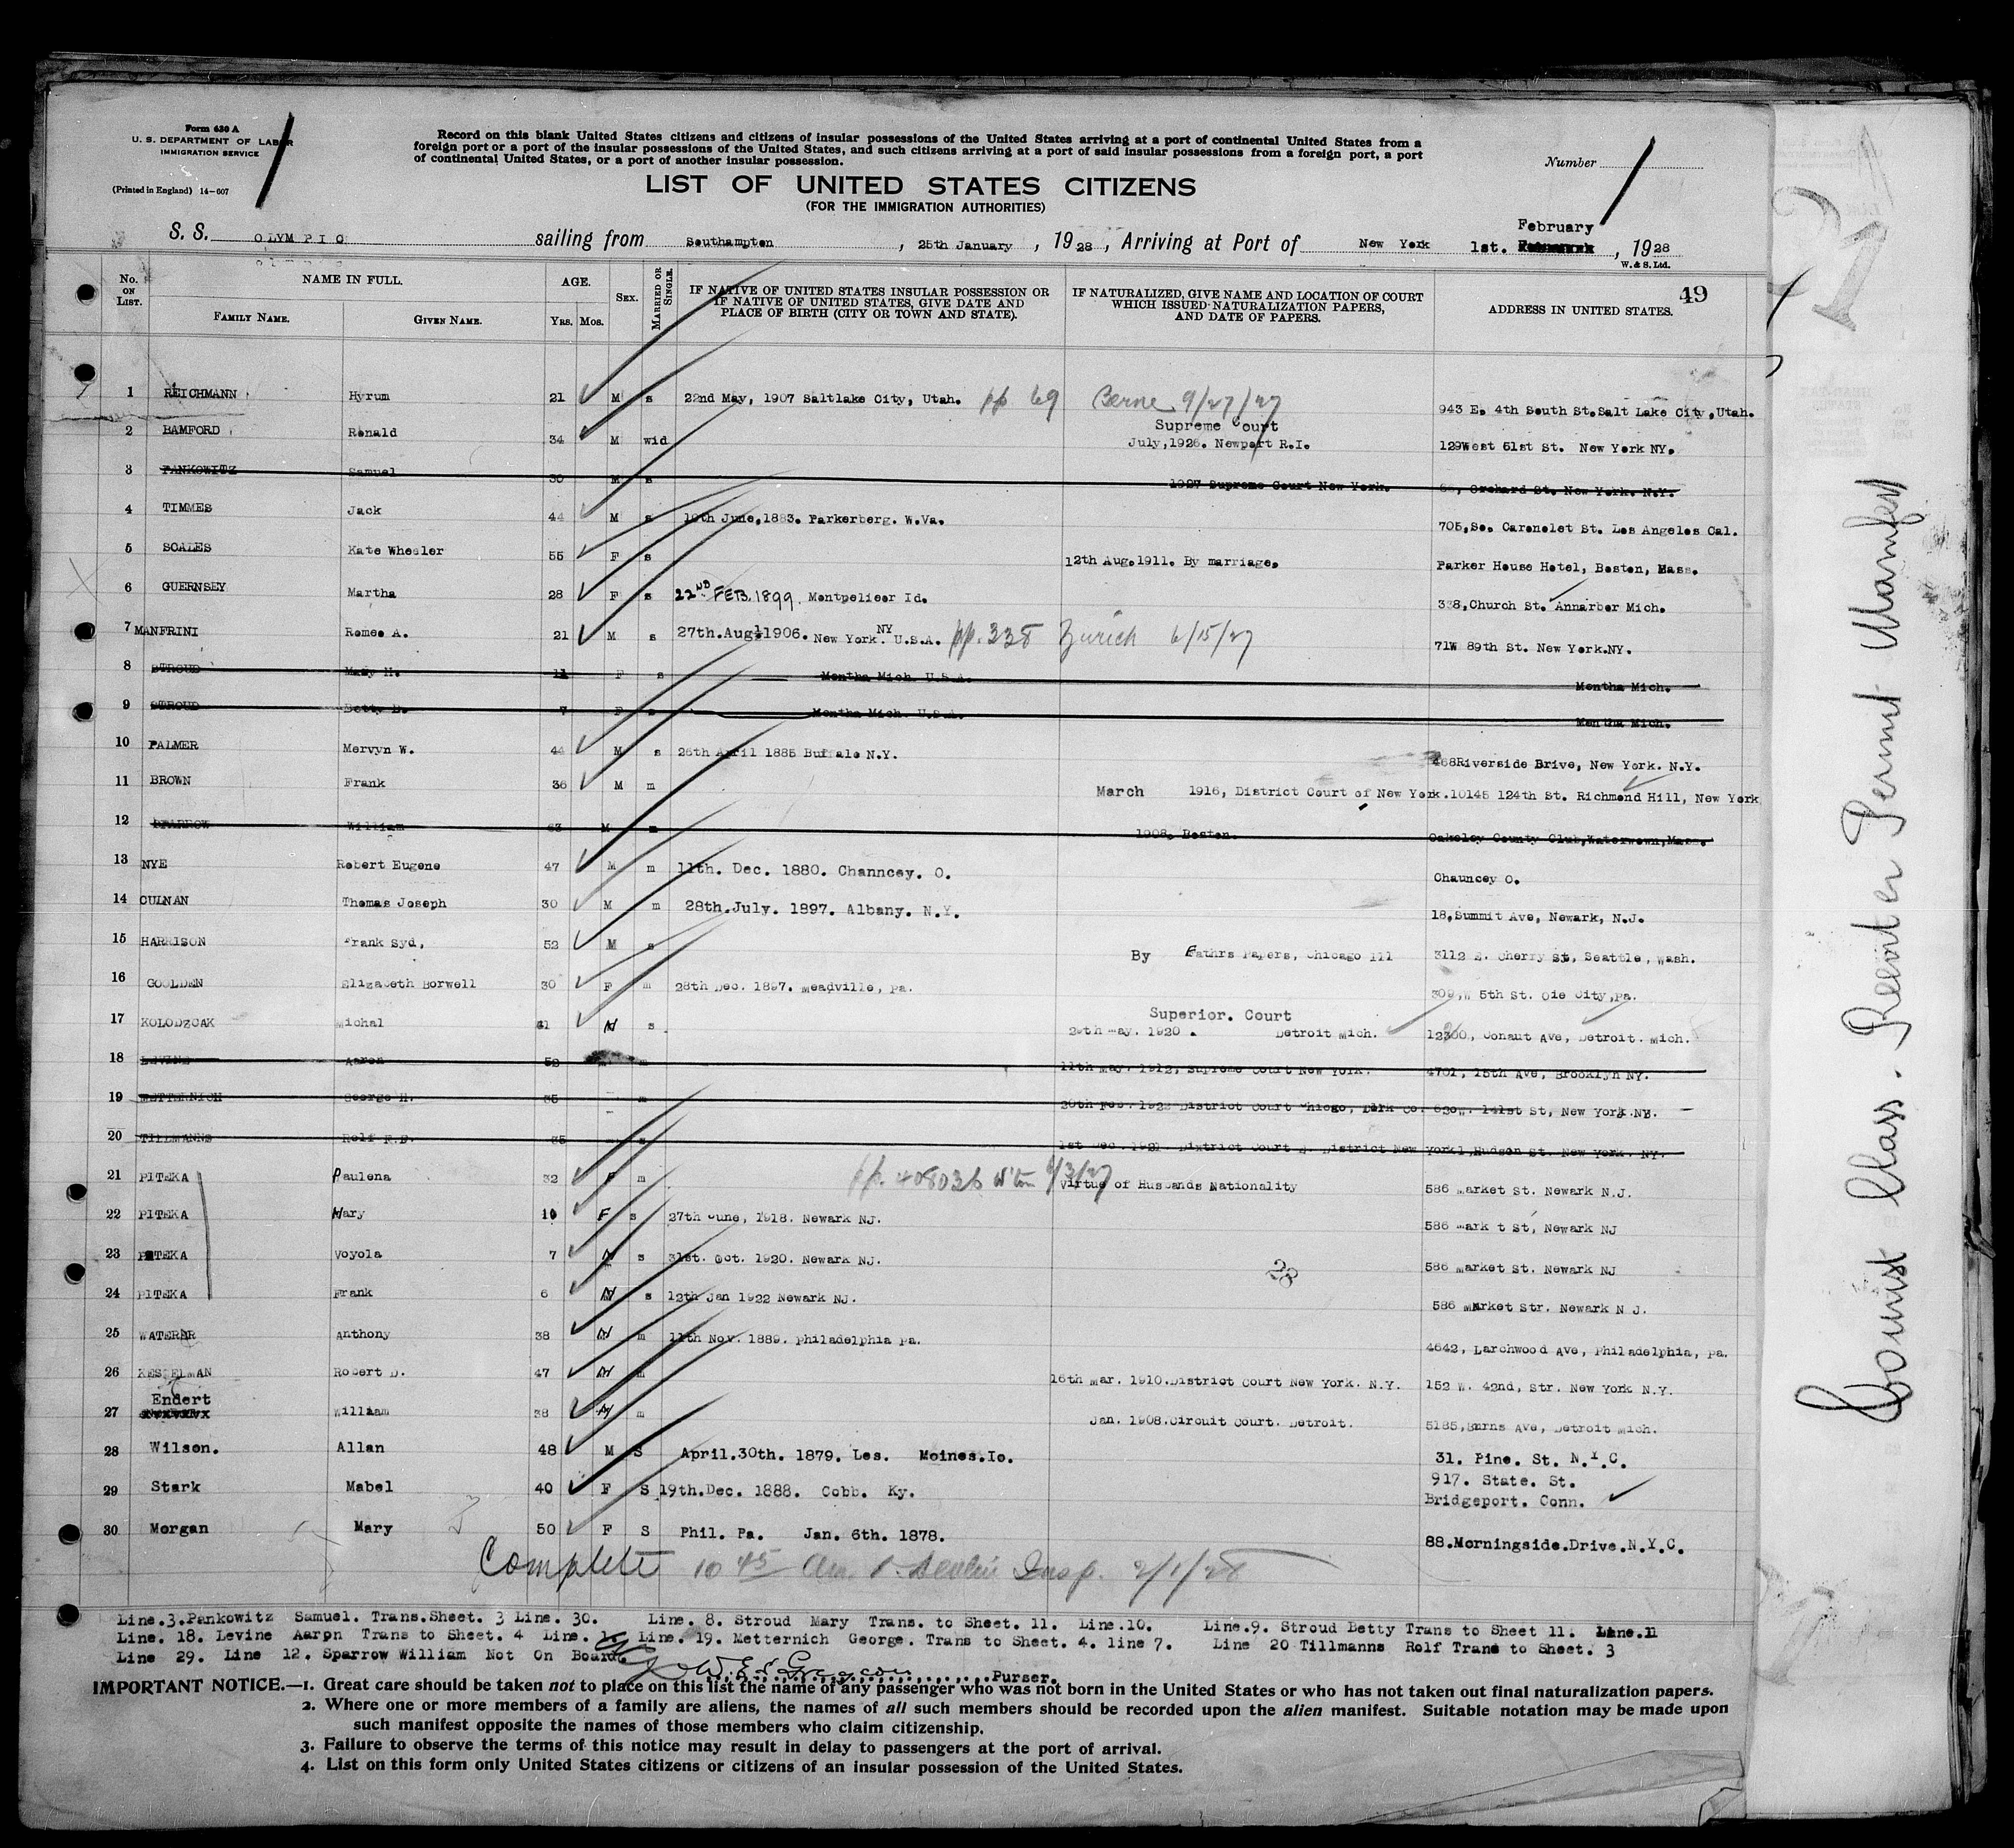 Form 630 A
U. S. DEPARTMENT OF LABOR
IMMIGRATION SERVICE
(Printed in England) 14-607
Record on this blank United States citizens and citizens of insular possessions of the United States arriving at a port of continental United States from a
foreign port or a port of the insular possessions of the United States, and such citizens arriving at a port of said insular possessions from a foreign port, a port
of continental United States, or a port of another insular possession.
Number
LIST OF UNITED STATES CITIZENS
(FOR THE IMMIGRATION AUTHORITIES)
February
S. S. OLYMPIC sailing from Southampton, 25th January, 1928, Arriving at Port of New York 1st. , 1928
W. & S. Ltd.
49
No. ON LIST. NAME IN FULL. FAMILY NAME. GIVEN NAME. AGE. Yrs. Mos. SEX. MARRIED OR SINGLE. IF NATIVE OF UNITED STATES INSULAR POSSESSION OR IF NATIVE OF UNITED STATES, GIVE DATE AND PLACE OF BIRTH (CITY OR TOWN AND STATE). IF NATURALIZED, GIVE NAME AND LOCATION OF COURT WHICH ISSUED NATURALIZATION PAPERS, AND DATE OF PAPERS. ADDRESS IN UNITED STATES.
1 REICHMANN Hyrum 21 M s 22nd May, 1907 Saltlake City, Utah. pp 69 Berne 9/27/27 943 E. 4th South St. Salt Lake City, Utah.
2 BAMFORD Ronald 34 M wid Supreme Court July, 1926. Newport R.I. 129West 51st St. New York NY.
3 PANKOWITZ Samuel 30 M s 1927 Supreme Court New York. Orchard St. New York. N.Y.
4 TIMMES Jack 44 M s 19th June, 1883. Parkerberg. W.Va. 705, So. Caronolet St. Los Angeles Cal.
5 SCALES Kate Wheeler 55 F s 12th Aug. 1911. By marriage. Parker House Hotel, Boston, Mass.
6 GUERNSEY Martha 28 F s 22ND FEB. 1899. Montpelieer Id. 338, Church St. Annarbor Mich.
7 MANFRINI Romeo A. 21 M s 27th. Aug. 1906. New York. NY U.S.A. pp. 338 Zurich 6/15/27 71W 89th St. New York.NY.
8 STROUD Mary H. 11 F s Montha Mich. U.S.A. Montha Mich.
9 STROUD Betty B. 7 F s Montha Mich. U.S.A. Montha Mich.
10 PALMER Mervyn W. 44 M s 26th April 1885 Buffalo N.Y. 468Riverside Drive, New York. N.Y.
11 BROWN Frank 36 M m March 1916, District Court of New York. 10145 124th St. Richmond Hill, New York
12 SPARROW William 63 M m 1908. Boston. Oakeley County Club, Watertown, Mass.
13 NYE Robert Eugene 47 M m 11th. Dec. 1880. Channcey. O. Chauncey O.
14 CULNAN Thomas Joseph 30 M m 28th. July. 1897. Albany. N.Y. 18, Summit Ave, Newark, N.J.
15 HARRISON Frank Syd, 52 M s By Fathrs Papers, Chicago Ill 3112 E. Cherry St, Seattle, Wash.
16 GOOLDEN Elizabeth Borwell 30 F m 28th Dec. 1897. Meadville, Pa. 309, W 5th St. Oie City, Pa.
17 KOLODZCAK Michal 41 M s Superior. Court 29th May. 1920. Detroit Mich. 12300, Conaut Ave, Detroit. Mich.
18 LEVINE Aaron 52 m 11th May. 1912, Supreme Court New York. 4701, 15th Ave, Brooklyn NY.
19 METTERNICH George H. 35 m 20th Feb. 1922 District Court Chicgo, 630W. 141st St, New York NY.
20 TILLMANNS Rolf 35 1st Dec. 1921 District Court District New York 1, Hudson St. New York. NY.
21 PITEKA Paulena 32 F m pp. 408036 W'ton 6/3/27 Virtue of Husbands Nationality 586 Market St. Newark N.J.
22 PITEKA Mary 10 F s 27th June, 1918. Newark NJ. 586 Mark t St, Newark NJ
23 PITEKA Voyola 7 M s 31st. Oct. 1920. Newark NJ. 586 Market St. Newark NJ
28
24 PITEKA Frank 6 M s 12th Jan 1922 Newark NJ. 586 Market Str. Newark N J.
25 WATERER Anthony 38 M m 11th Nov. 1889. Philadelphia Pa. 4642, Larchwood Ave, Philadelphia, Pa.
26 KESSELMAN Robert D. 47 M m 16th Mar. 1910. District Court New York. N.Y. 152 W. 42nd, Str. New York N.Y.
27 Endert William 38 M m Jan. 1908. Circuit Court. Detroit. 5185, Burns Ave, Detroit Mich.
28 Wilson. Allan 48 M S April. 30th. 1879. Les. Moines. Io. 31. Pine. St. N.Y.C.
29 Stark Mabel 40 F S 19th. Dec. 1888. Cobb. Ky. 917. State. St. Bridgeport. Conn.
30 Morgan Mary 50 F S Phil. Pa. Jan. 6th. 1878. 88. Morningside. Drive. N.Y.C.
Complete 10 45 Am. Insp. 2/1/28
Line. 3. Pankowitz Samuel. Trans. Sheet. 3 Line. 30. Line. 8. Stroud Mary Trans. to Sheet. 11. Line. 10. Line. 9. Stroud Betty Trans to Sheet 11. Line. 11
Line. 18. Levine Aaron Trans to Sheet. 4 Line. 1. Line. 19. Metternich George. Trans to Sheet. 4. line 7. Line 20 Tillmanns Rolf Trans to Sheet. 3
Line 29. Line 12. Sparrow William Not On Board.
Purser.
IMPORTANT NOTICE.—1. Great care should be taken not to place on this list the name of any passenger who was not born in the United States or who has not taken out final naturalization papers.
2. Where one or more members of a family are aliens, the names of all such members should be recorded upon the alien manifest. Suitable notation may be made upon
such manifest opposite the names of those members who claim citizenship.
3. Failure to observe the terms of this notice may result in delay to passengers at the port of arrival.
4. List on this form only United States citizens or citizens of an insular possession of the United States.
Tourist Class. Reenter Permit Manifest